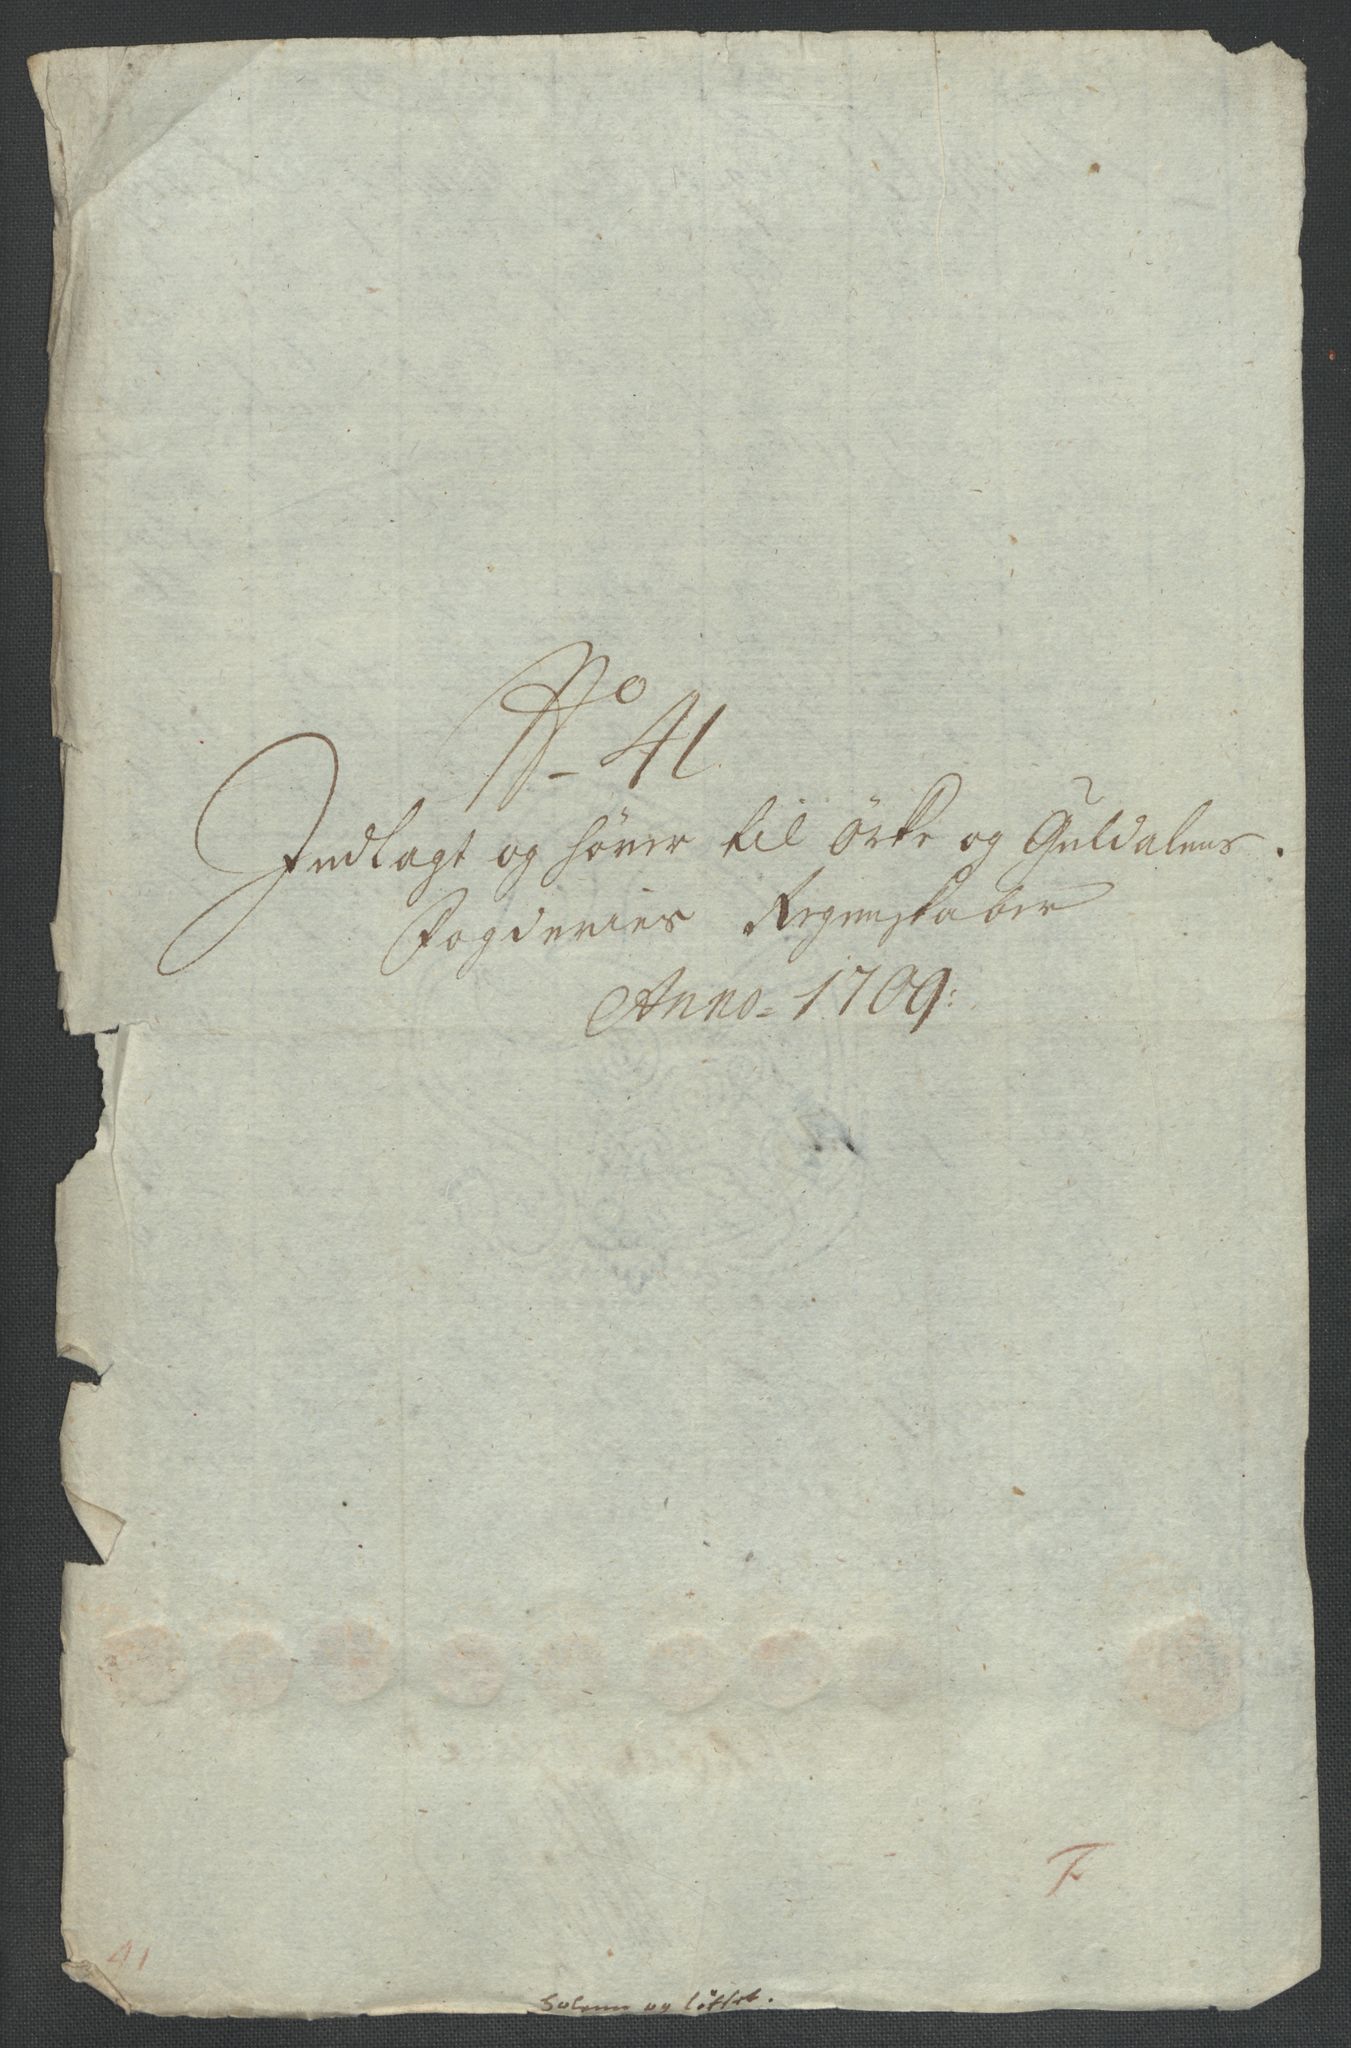 No 41
Indlagt og hörer til Örke og Guldalens.
Fogderies Regenskaber
Anno= 1709:
7
41
og löfset.